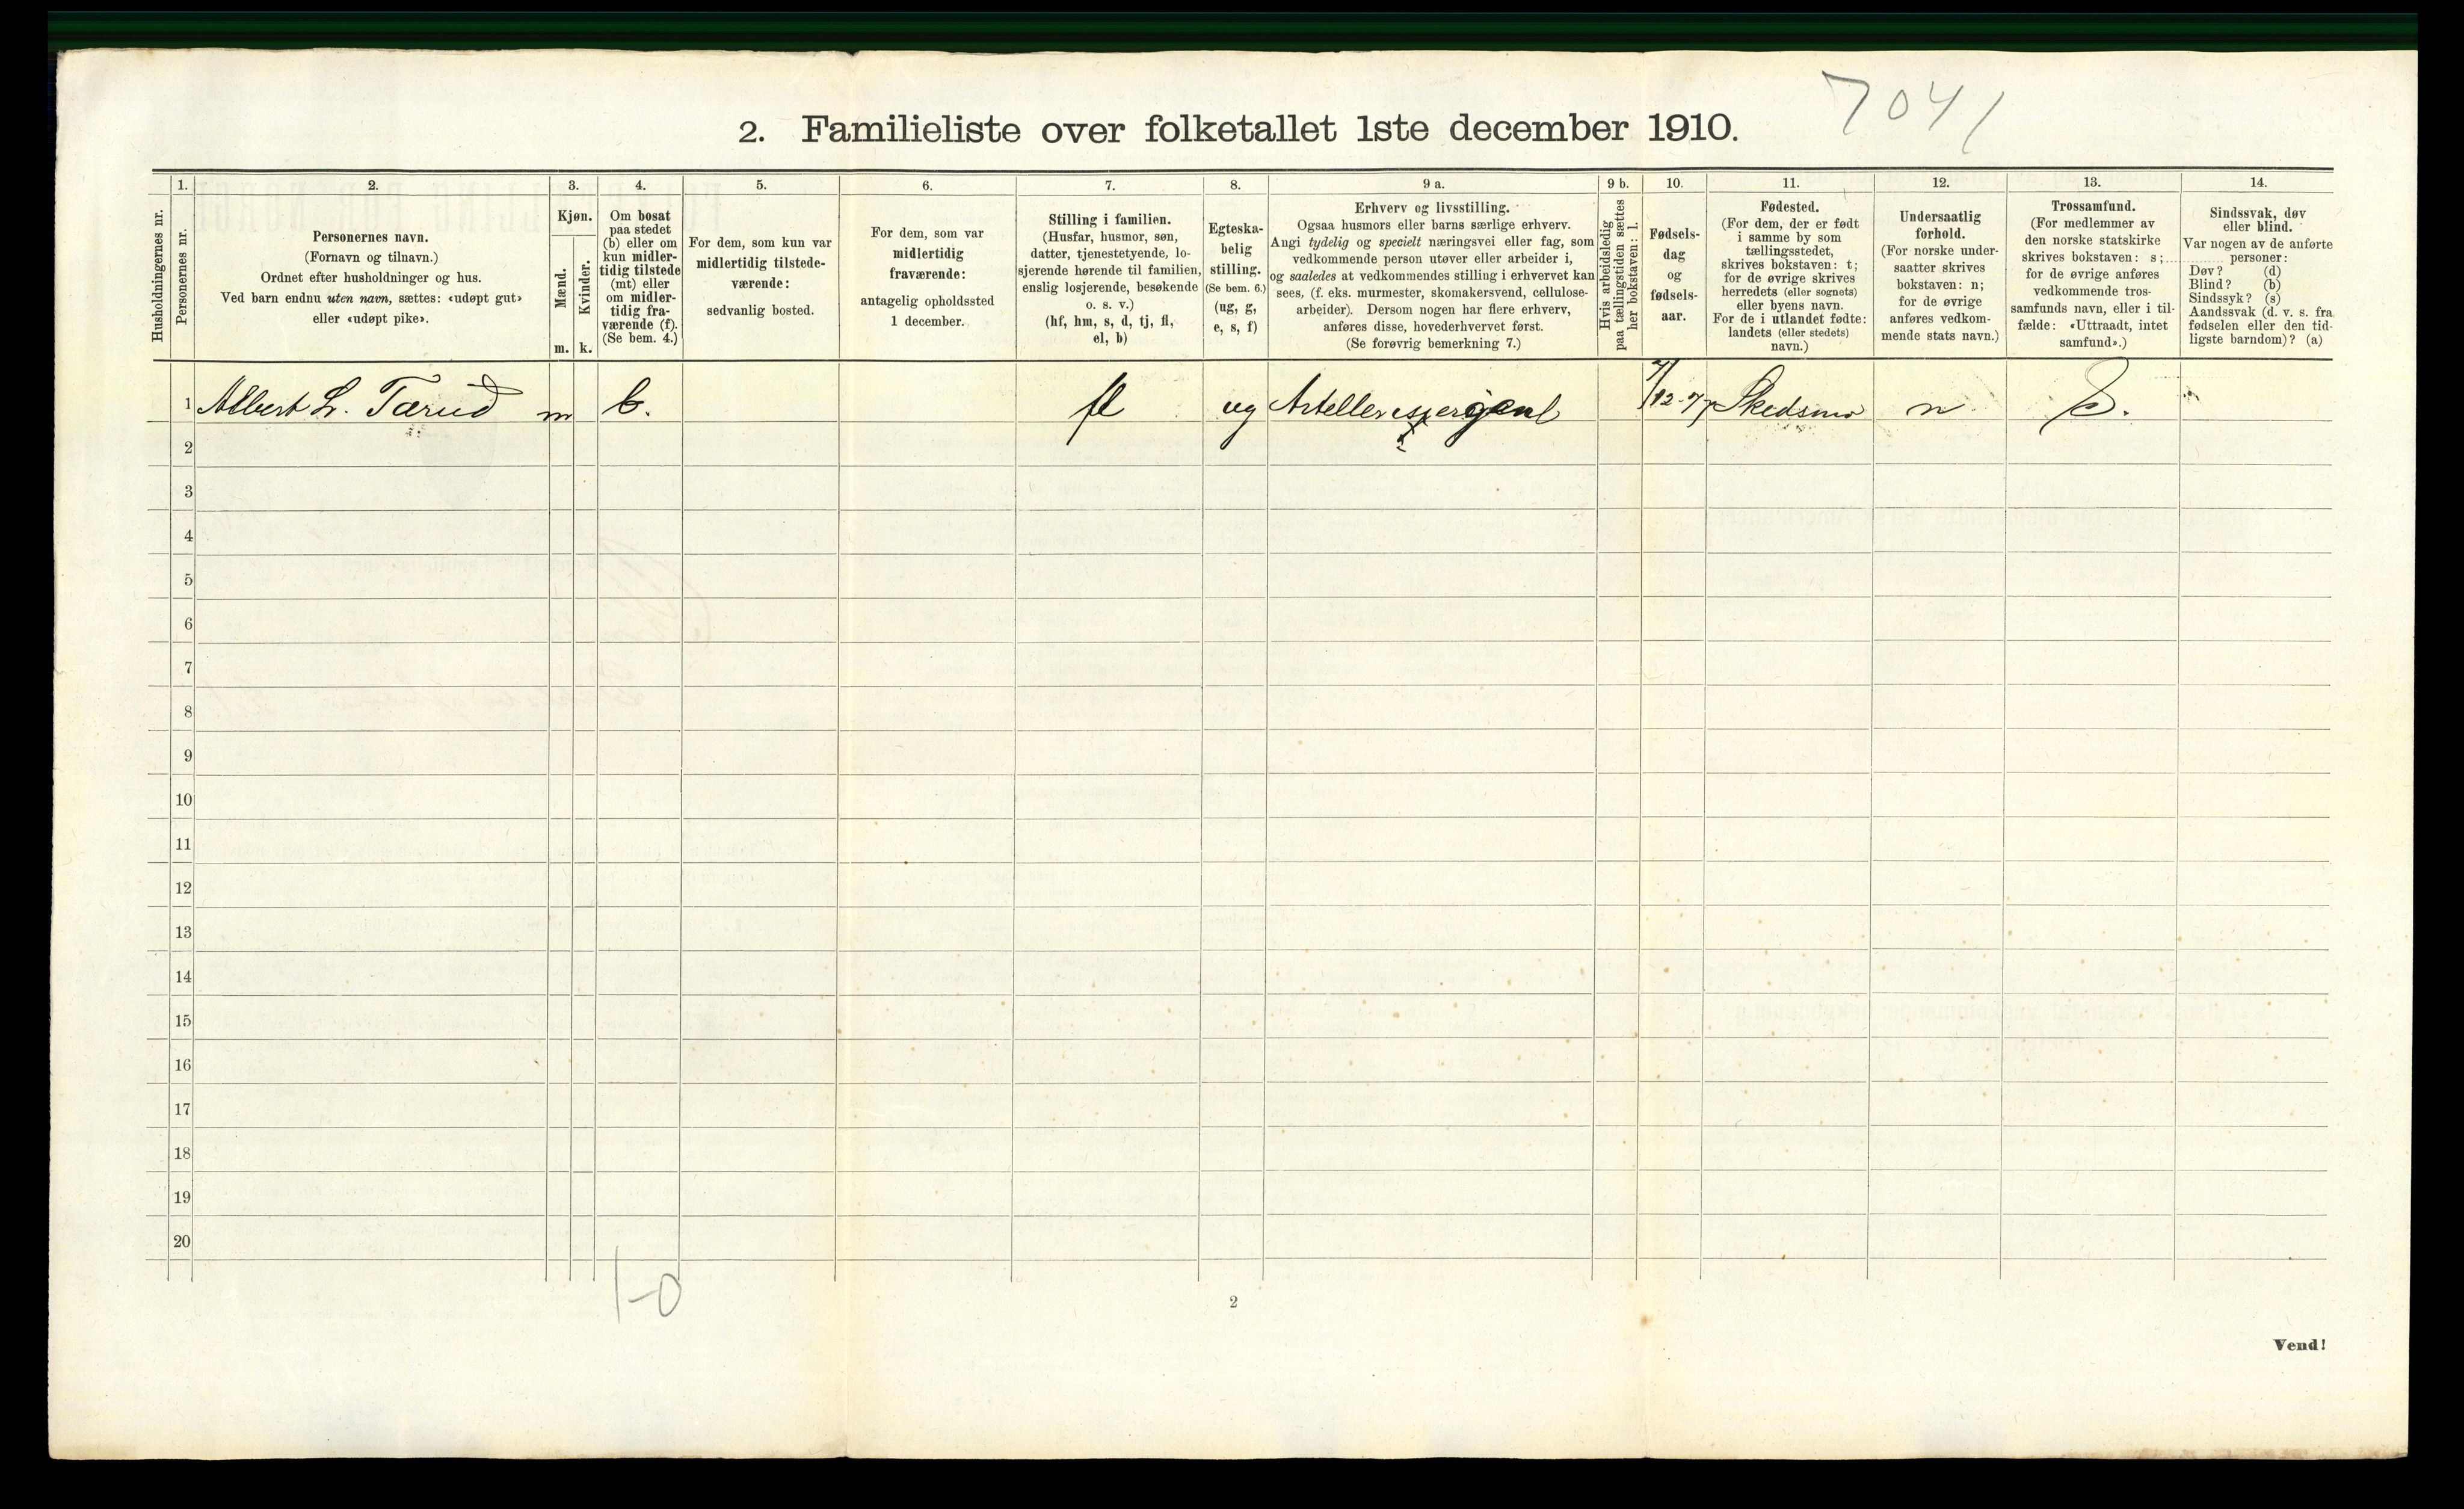 7041
2. Familieliste over folketallet 1ste december 1910.
1. 2. 3. 4. 5. 6. 7. 8. 9 a. 9 b. 10. 11. 12. 13. 14.
Husholdningernes nr.
Personernes nr.
Personernes navn.
(Fornavn og tilnavn.)
Ordnet efter husholdninger og hus.
Ved barn endnu uten navn, sættes: «udøpt gut»
eller «udøpt pike».
Kjøn.
Mænd.
m.
Kvinder.
k.
Om bosat
paa stedet
(b) eller om
kun midler-
tidig tilstede
(mt) eller
om midler-
tidig fra-
værende (f).
(Se bem. 4.)
For dem, som kun var
midlertidig tilstede-
værende:
sedvanlig bosted.
For dem, som var
midlertidig
fraværende:
antagelig opholdssted
1 december.
Stilling i familien.
(Husfar, husmor, søn,
datter, tjenestetyende, lo-
sjerende hørende til familien,
enslig losjerende, besøkende
o. s. v.)
(hf, hm, s, d, tj, fl,
el, b)
Egteska-
belig
stilling.
(Se bem. 6.)
(ug, g,
e, s, f)
Erhverv og livsstilling.
Ogsaa husmors eller barns særlige erhverv.
Angi tydelig og specielt næringsvei eller fag, som
vedkommende person utøver eller arbeider i,
og saaledes at vedkommendes stilling i erhvervet kan
sees, (f. eks. murmester, skomakersvend, cellulose-
arbeider). Dersom nogen har flere erhverv,
anføres disse, hovederhvervet først.
(Se forøvrig bemerkning 7.)
Hvis arbeidsledig
paa tællingstiden sættes
her bokstaven: l.
Fødsels-
dag
og
fødsels-
aar.
Fødested.
(For dem, der er født
i samme by som
tællingsstedet,
skrives bokstaven: t;
for de øvrige skrives
herredets (eller sognets)
eller byens navn.
For de i utlandet fødte:
landets (eller stedets)
navn.)
Undersaatlig
forhold.
(For norske under-
saatter skrives
bokstaven: n;
for de øvrige
anføres vedkom-
mende stats navn.)
Trossamfund.
(For medlemmer av
den norske statskirke
skrives bokstaven: s;
for de øvrige anføres
vedkommende tros-
samfunds navn, eller i til-
fælde: «Uttraadt, intet
samfund».)
Sindssvak, døv
eller blind.
Var nogen av de anførte
personer:
Døv? (d)
Blind? (b)
Sindssyk? (s)
Aandssvak (d. v. s. fra
fødselen eller den tid-
ligste barndom)? (a)
1 Albert L. Tærud m b. fl ug 7/12-77 Skedsmo n S.
2
3
4
5
6
7
8
9
10
11
12
13
14
15
16
17
18
19
20
1-0
2
Vend!